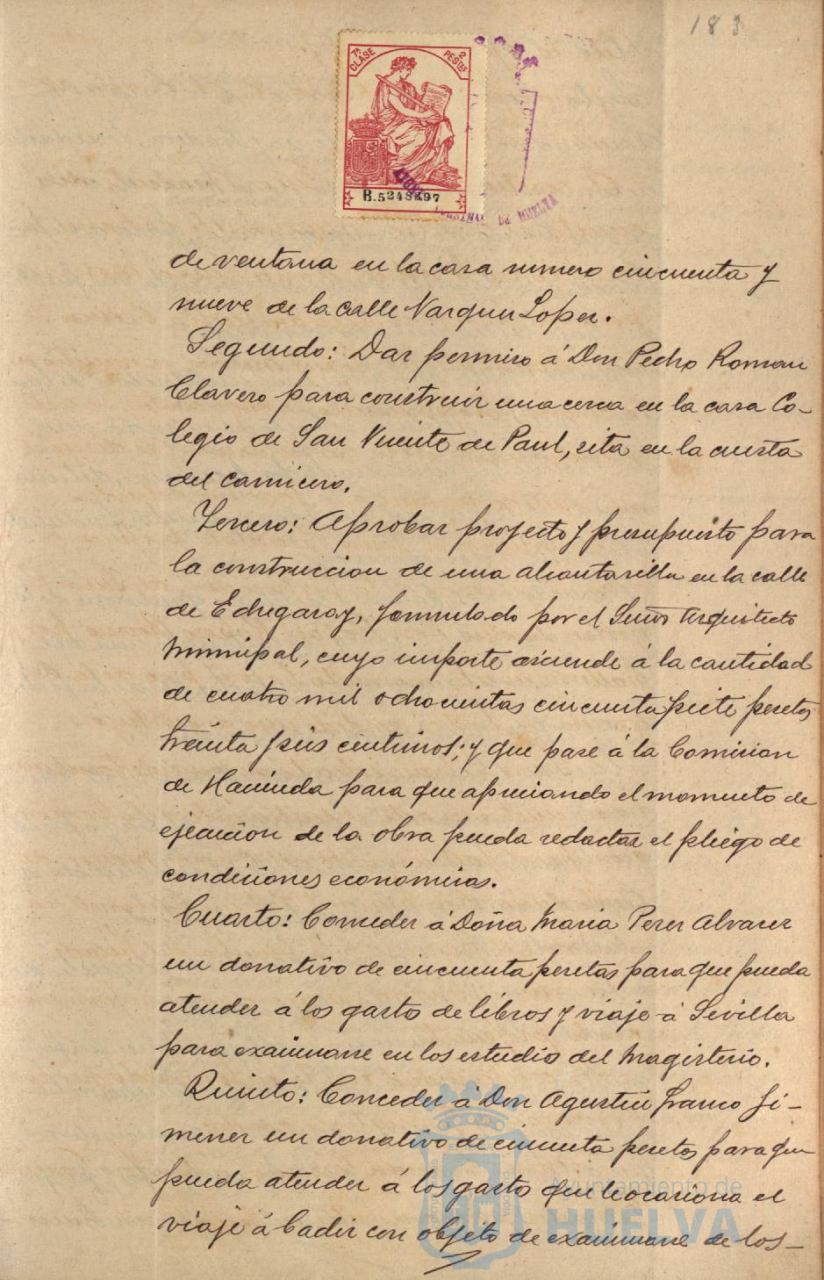 183
7ª CLASE
2 PESTAS
B.5248897
DE HUELVA
de ventana en la casa numero cincuenta y
nueve de la calle Vazquez Lopez.
Segundo: Dar permiso á Don Pedro Roman
Clavero para construir una cerca en la casa Co-
legio de San Vicente de Paul, sita en la cuesta
del carnicero.
Tercero: Aprobar proyecto y presupuesto para
la construccion de una alcantarilla en la calle
de Echegaray, formulado por el Señor Arquitecto
Municipal, cuyo importe asciende á la cantidad
de cuatro mil ochocientas cincuenta y siete pesetas
treinta y seis centimos; y que pase á la Comision
de Hacienda para que apreciando el momento de
ejecucion de la obra pueda redactar el pliego de
condiciones económicas.
Cuarto: Conceder á Doña Maria Perez Alvarez
un donativo de cincuenta pesetas para que pueda
atender á los gasto de libros y viaje á Sevilla
para examinarse en los estudio del Magisterio.
Quinto: Conceder á Don Agustin Franco Ji-
menez un donativo de cincuenta pesetas para que
pueda atender á los gasto que le ocasiona el
viaje á Cadiz con objeto de examinarse de los-
Ayuntamiento de
HUELVA